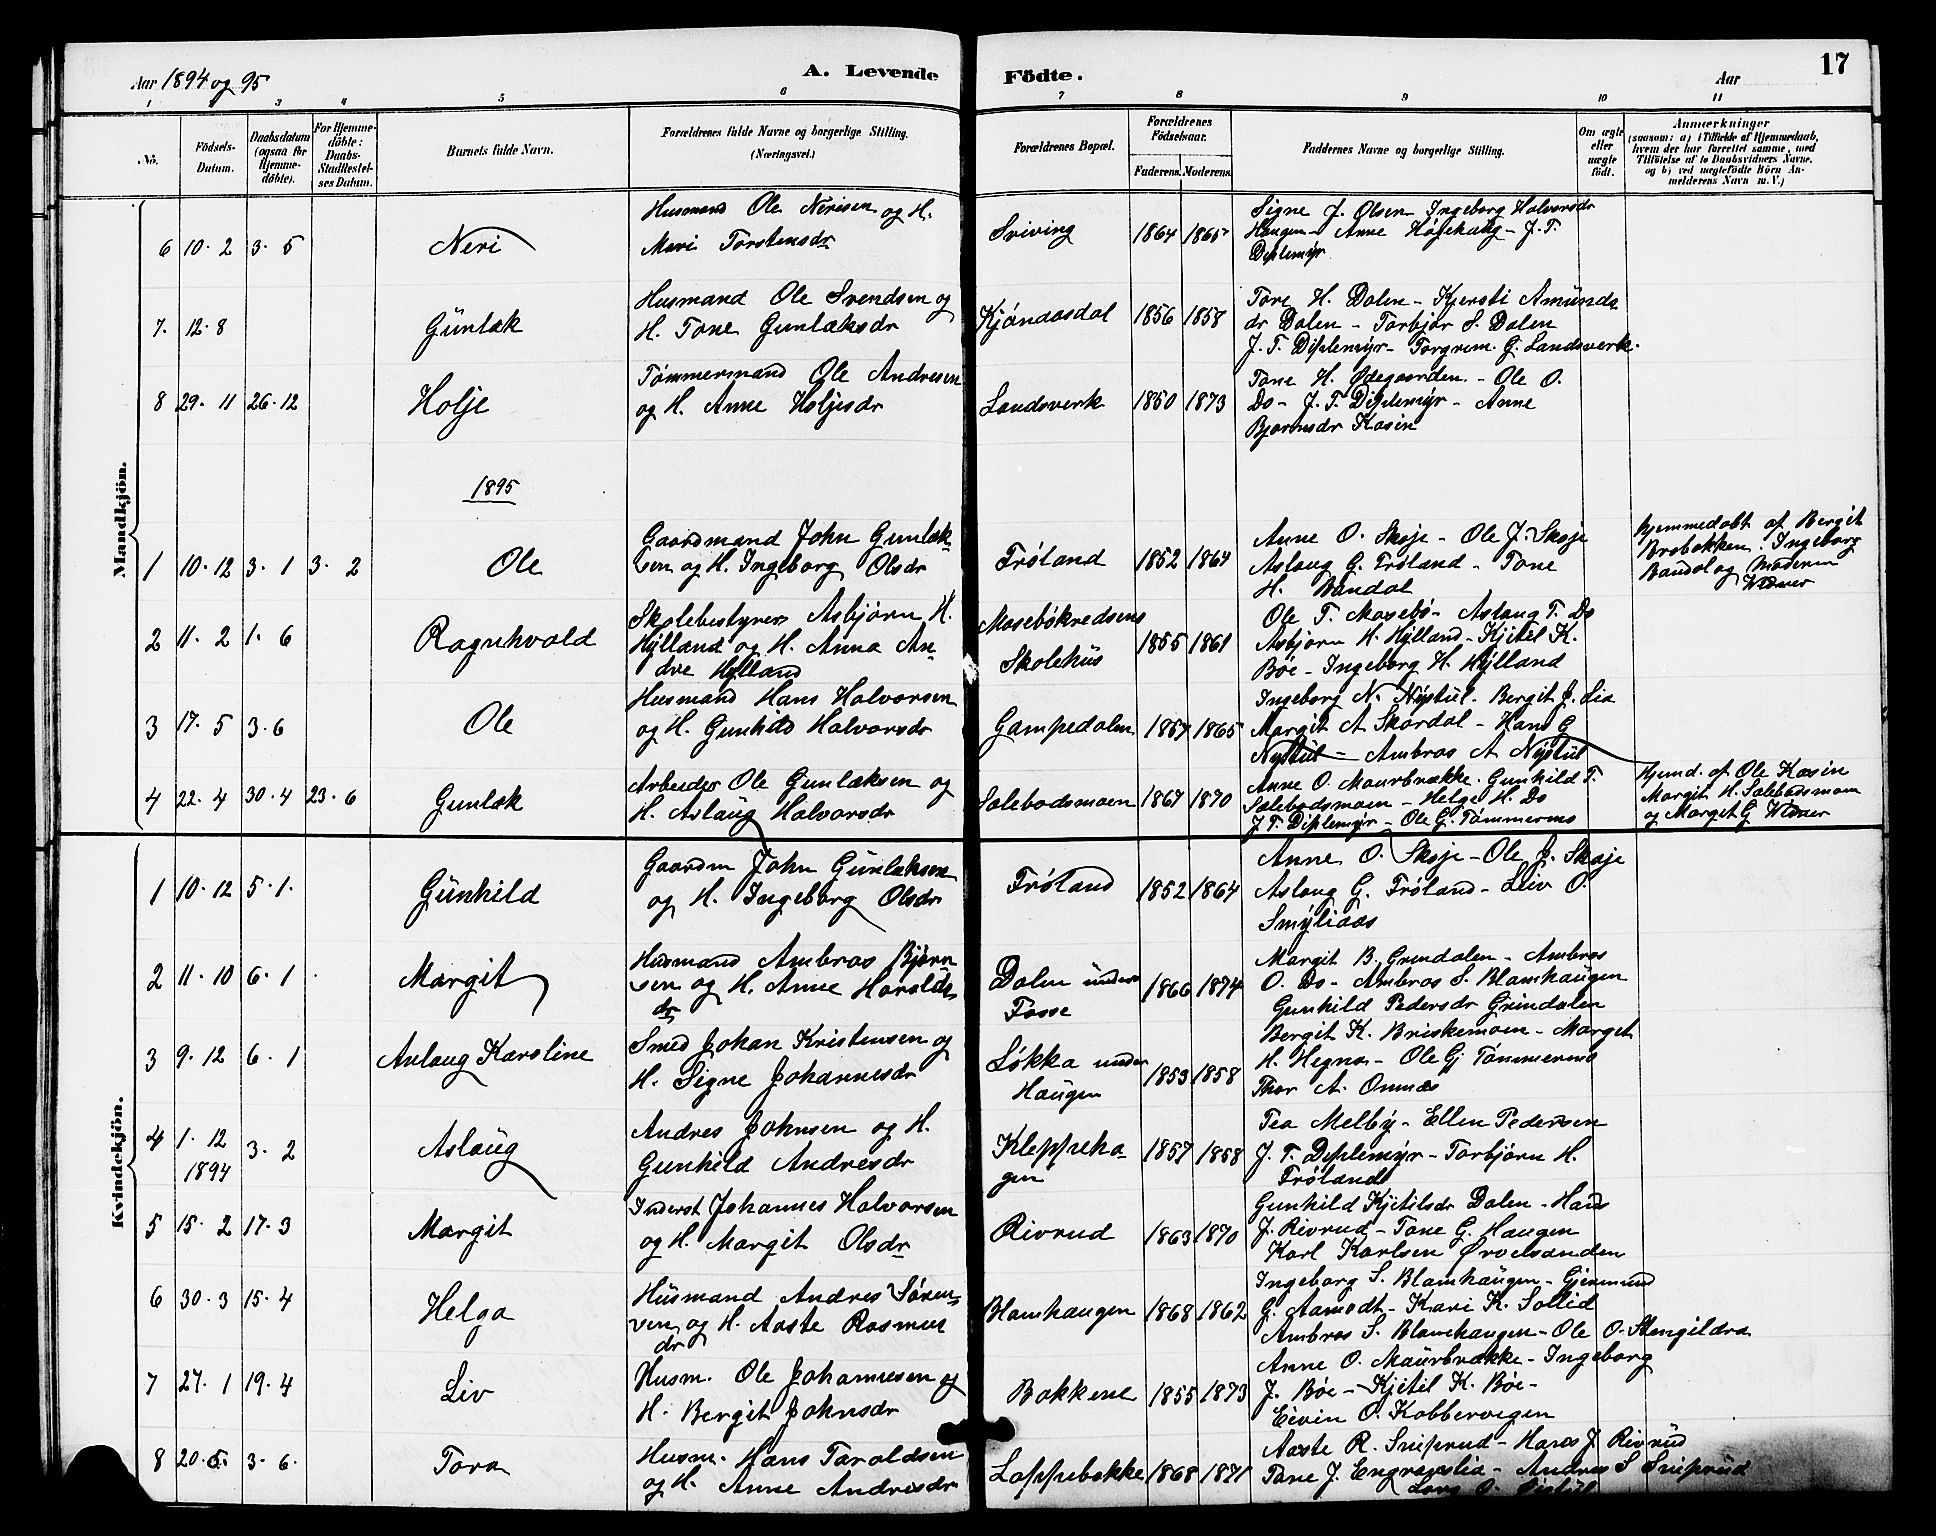 Aar 1894 og 95
A. Levende Födte.
Aar
17
1 2 3 4 5 6 7 8 9 10 11
No.
Födsels-Datum.
Daabsdatum (ogsaa for Hjemme-döbte).
For Hjemme-döbte: Daabs-Stadfæstel-ses Datum.
Barnets fulde Navn.
Forældrenes fulde Navne og borgerlige Stilling.
(Næringsvei.)
Forældrenes Bopæl.
Forældrenes Födselsaar.
Faderens. Moderens.
Faddernes Navne og borgerlige Stilling.
Om ægte eller uægte födt.
Anmærkninger
(saasom: a) i Tilfælde af Hjemmedaab, hvem der har forrettet samme, med Tilföielse af to Daabsvidners Navne, og b) ved uægtefödte Börn Anmelderens Navn m. V.)
Mandkjön.
6 10-2 3-5 Neri
Husmand Ole Nerisen og H.
Mari Torstensdr
Sviving 1864 1865
Signe J. Olsen Ingeborg Halvorsdr
Haugen - Anne Høgehaug - J. T.
Diplemyr
7. 12-8 Gunlæk
Husmand Ole Svendsen og
H. Tone Gunlæksdr
Kjøndosdal 1856 1858
Tore H. Dalen - Kjersti Amunds
dr Dalen - Torbjør S. Dalen
J. T. Diplemyr - Torgrim G. Landsverk
8 29-11 26-12 Holje
Tømmermand Ole Andresen
og H. Anne Holjesdr
Landsverk 1850 1873
Tone H. Ødegaarden - Ole O.
Do - J. T. Diplemyr - Anne
Bjørnsdr Kasin
1895
1 10-12 3-1 3-2 Ole
Gaardmand John Gunlæk-
sen og H. Ingeborg Olsdr
Frøland 1852 1864
Anne O. Skøje - Ole J. Skøje
Aslaug G. Frøland - Tone
H. Bandal
Hjemmedøbt af Bergit
Brobakken. Ingeborg
Bandal og Moderen
Vidner
2 11-2 1-6 Ragnhvald
Skolebestyrer Asbjørn H.
Hylland og H. Anna An-
dre Hylland
Mosebøkredsens
Skolehus 1855 1861
Ole T. Mosebø - Aslaug T. Do
Asbjørn H. Hylland - Kjitel K.
Bøe - Ingeborg H. Hylland
3 17-5 3-6 Ole
Husmand Hans Halvorsen
og H. Gunhild Halvorsdr
Gampedalen 1867 1865
Ingeborg N. Nystul - Bergit J. Lia
Margit A Skardal - Hans G
Nystul - Ambros A Nystul
4 22-4 30-4 23-6 Gunlæk
Arbeider Ole Gunlæksen og
H. Aslaug Halvorsdr
Solebodsmoen 1867 1870
Anne O. Maurbrække - Gunhild T.
Solebodsmoen - Helge H. Do
J T. Diplemyr - Ole G. Tømmernes
Hjemd. af Ole Kasin
Margit H. Solebodsmoen
og Margit G Vidner
Kvindekjön.
1 10-12 5-1. Gunhild
Gaardm John Gunlæksen
og H. Ingeborg Olsdr
Frøland 1852 1864
Anne O. Skøje - Ole J. Skøje
Aslaug G. Frøland - Liv O.
Smyliaas
2 11-10 6-1 Margit
Husmand Ambros Bjørn
sen og H. Anne Harolds
dr
Dalen under
Fosse 1866 1874
Margit B. Grindalen - Ambros
O. Do - Ambros S. Blomhaugen
Gunhild Pedersdr Grindalen
3 9-12 6-1 Anlaug Karoline
Smed Johan Kristensen og
H. Signe Johannesdr
Løkka under
Haugen 1853 1858
Bergit K. Briskemoen - Marget
H. Hegna - Ole Gj Tømmernes
Thor A. Omnæs
4 1-12 1894 3-2 Aslaug
Andres Johnsen og H.
Gunhild Andresdr
Kleppeha-
gen 1857 1858
Tea Melby - Ellen Pedersen
J. T. Diplemyr - Torbjørn H.
Frøland
5 15-2 17-3 Margit
Inderst Johannes Halvorsen
og H. Margit Olsdr
Rivrud 1863 1870
Gunhild Kjitilsdr Dalen - Hans
J. Rivrud - Tone G. Haugen
Karl Karlsen Ørvelsanden
6 30-3 15-4 Helga
Husmand Andres Søren-
sen og H. Aaste Rasmus
dr
Blomhaugen 1868 1862
Ingeborg S. Blomhaugen - Gjermund
G. Aamodt - Kari K. Sollid
Ambros S. Blomhaugen - Ole O. Stengildra
7 27-1 19-4 Liv
Husm. Ole Johannesen og
H. Bergit Johnsdr
Bakkene 1855 1873
Anne O. Maurbrække - Ingeborg
J. Bøe - Kjitil K. Bøe -
Eivin O. Kobbervigen
8 20-5 3-6. Tora
Husm. Hans Taraldsen
og H. Anne Andresdr
Loppebakke 1868 1871
Aaste R. Sniprud - Hans J Rivrud
Tone J. Engravslia - Andres S Sniprud